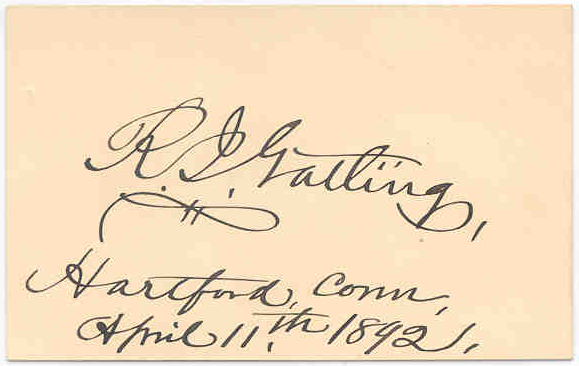 R. J. Gatling,
Hartford, Conn,
April 11,th 1892,